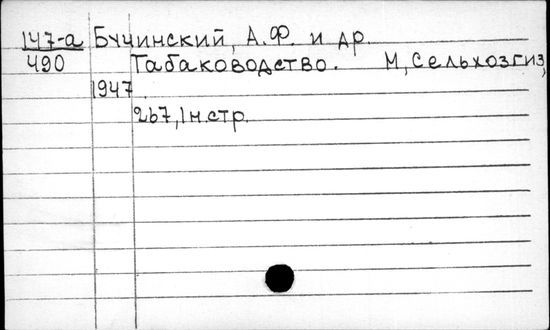 147-а Бучинский, А.Ф. и др.
490 Табаководство. М, Сельхозгиз,
1947.
267, 1 н.стр.